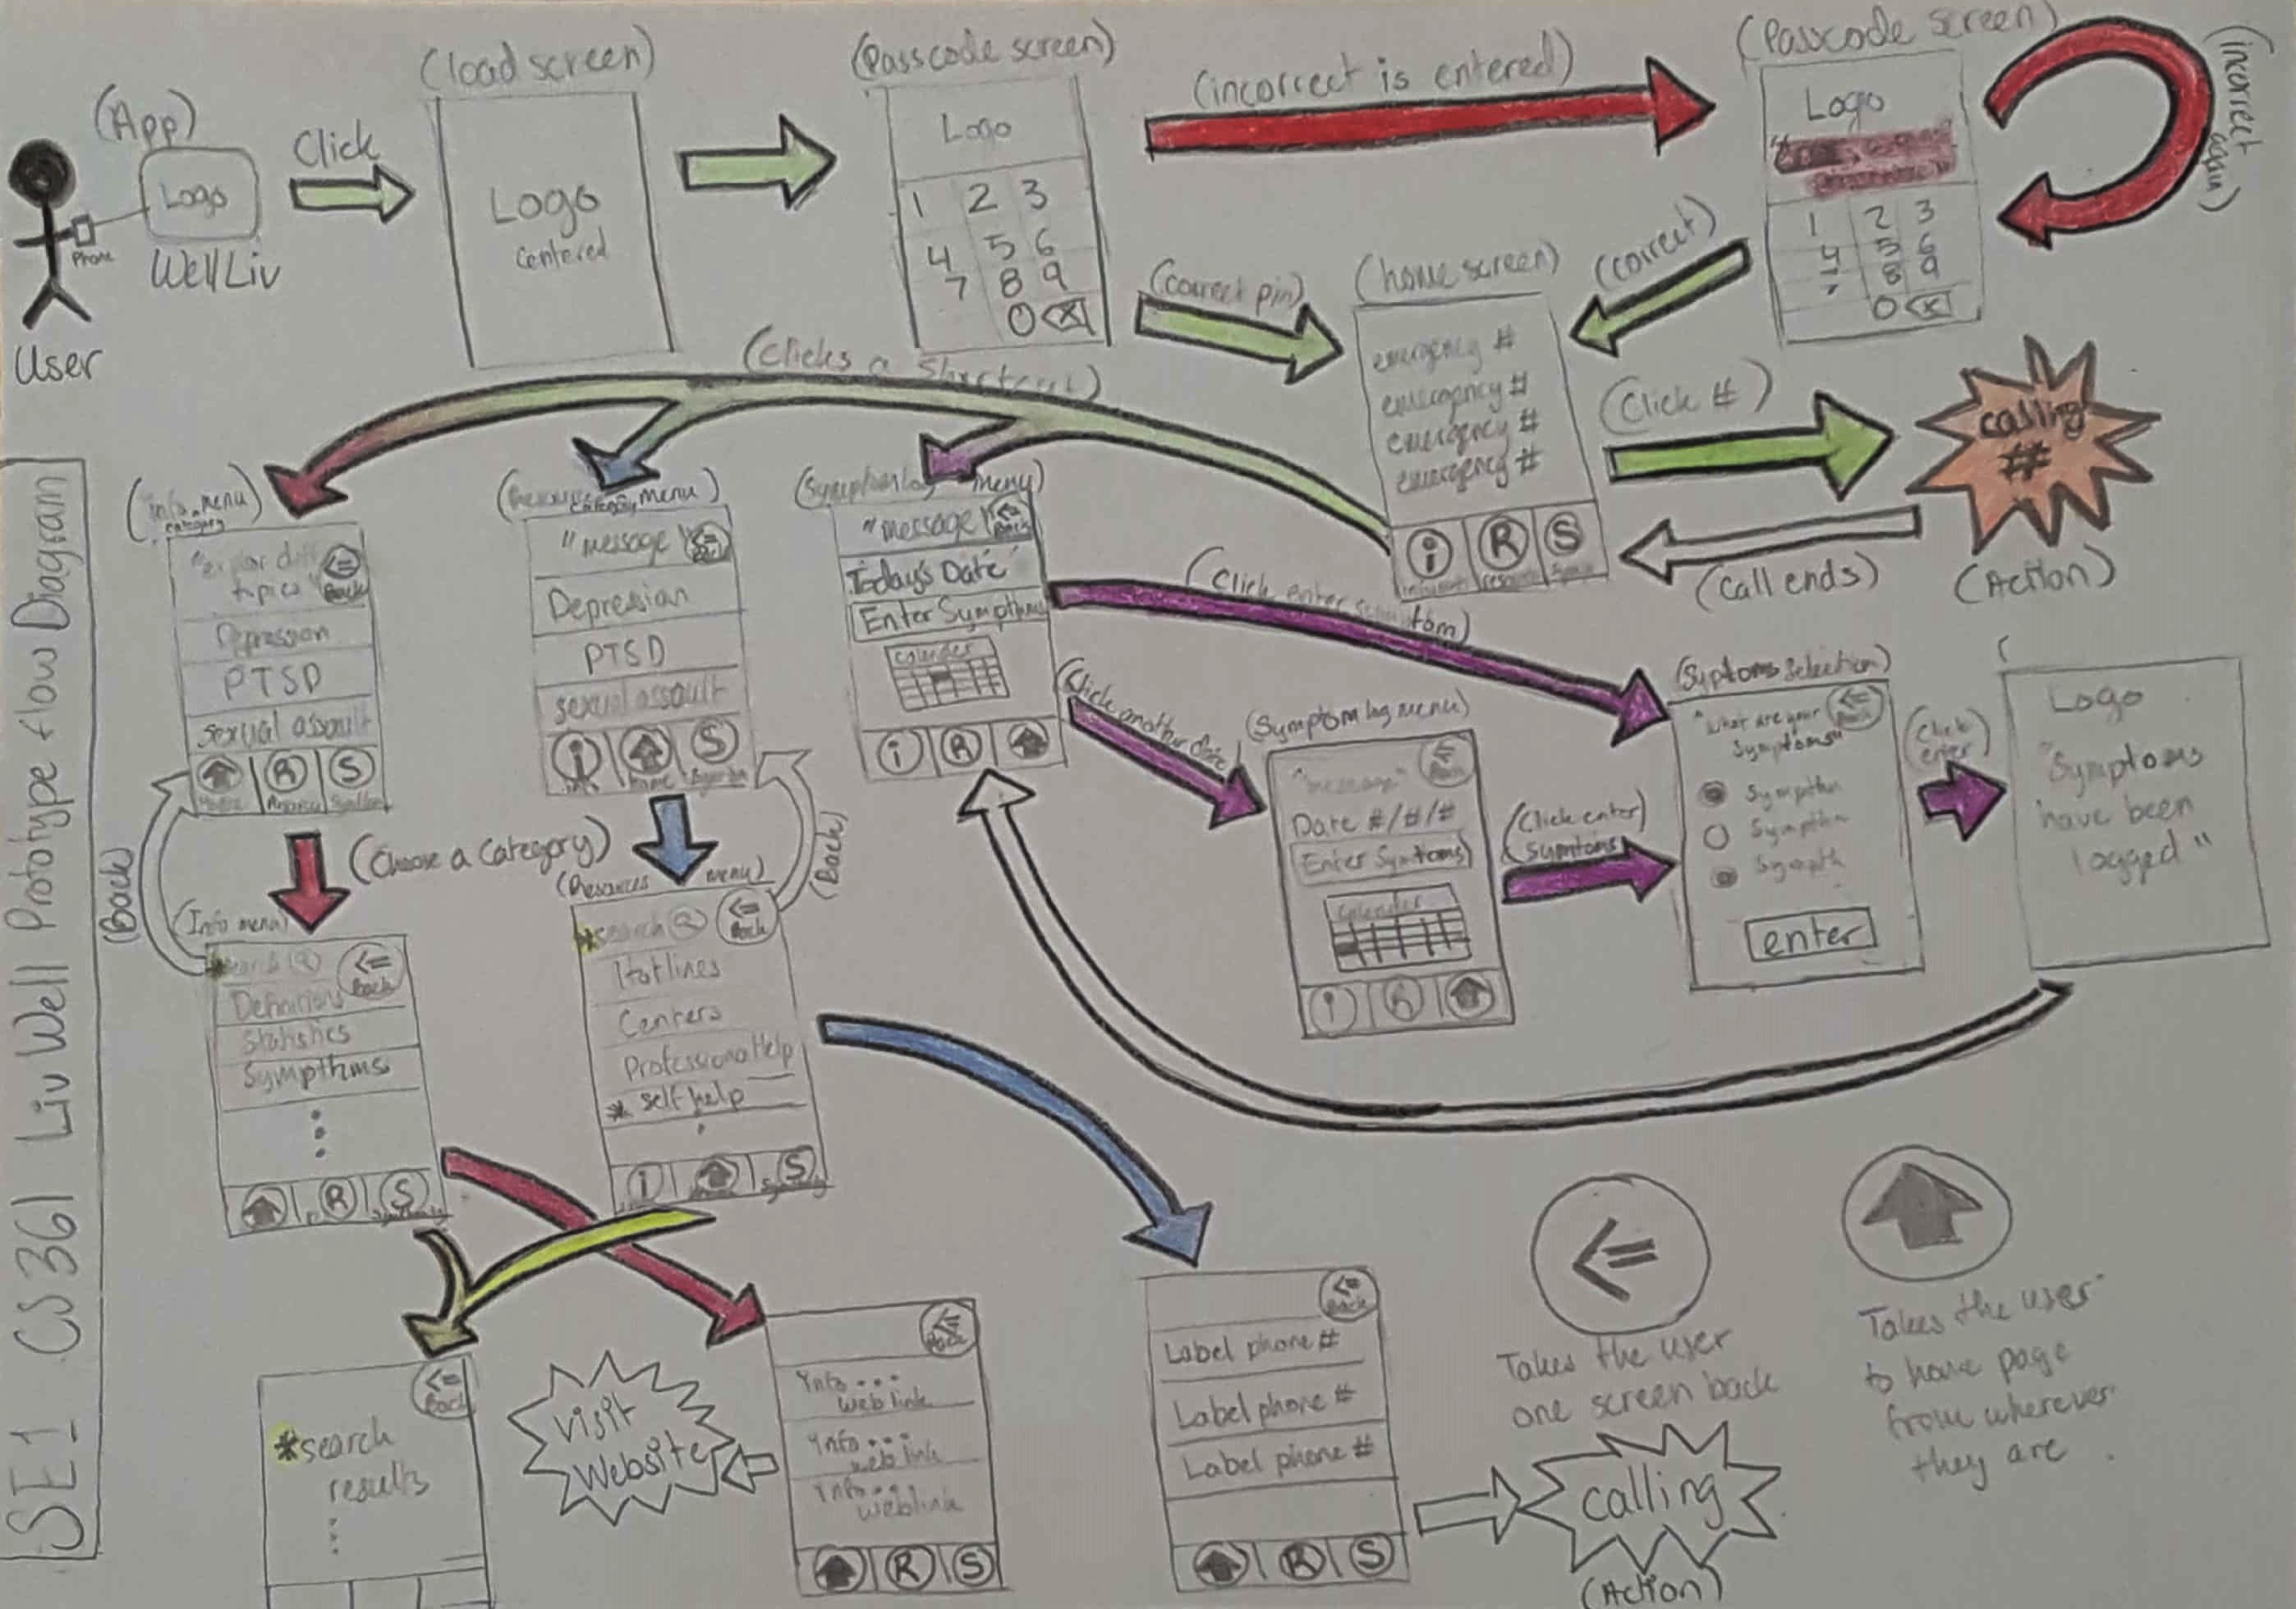 (App)
Logo
WellLiv
Phone
User
Click
(load screen)
Logo
Centered
(Passcode screen)
Logo
1 2 3
4 5 6
7 8 9
0
(incorrect is entered)
(Passcode screen)
Logo
1 2 3
4 5 6
7 8 9
0
(incorrect
again)
(correct pin)
(correct)
(home screen)
emergency #
emergency #
emergency #
emergency #
i R S
(Click #)
calling
##
(Action)
(Call ends)
(Clicks a Shortcut)
SE1 CS361 Liv Well Prototype flow Diagram
(info. menu)
category
topics"
Back
Depression
PTSD
sexual assault
R S
Home
(Resources menu)
category
"message"
Depression
PTSD
sexual assault
i S
Home
(Symptom log menu)
"message"
Back
Today's Date
Enter Sympthms
Calender
i R
(Click enter symptom)
(Click another date)
(Symptom log menu)
"message"
Back
Date #/#/#
Enter Symtoms
Calender
i R
(Click enter)
Symtoms
(Syptoms Selection)
"What are your
Symptoms"
Back
Sympthm
Sympthm
Sympth
enter
(Click
enter)
(
Logo
"Symptoms
have been
logged"
(Back)
(Choose a Category)
(Back)
(Info menu)
*search
<= Back
Definitions
Statistics
Sympthms
R S
(Resources menu)
*search
<= Back
Hotlines
Centers
Professional Help
* self help
i S
<= Back
*search
results
visit
Website
<= Back
Info...
web link
Info...
web link
Info...
weblink
R S
<= Back
Label phone #
Label phone #
Label phone #
R S
calling
(Action)
<=
Takes the user
one screen back
Takes the user
to home page
from wherever
they are.